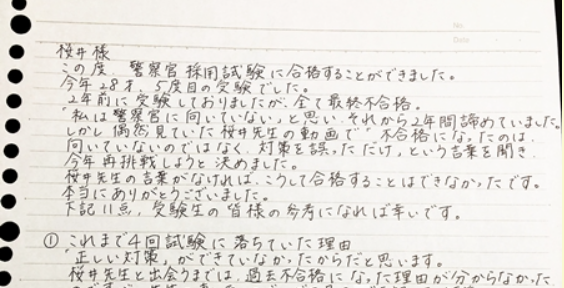 No.
Date
桜井様
この度、警察官採用試験に合格することができました。
今年28才、5度目の受験でした。
2年前に受験しておりましたが、全て最終不合格。
「私は警察官に向いていない」と思い、それから2年間諦めていました。
しかし偶然見ていた桜井先生の動画で"不合格になったのは、
向いていないのではなく、対策を誤っただけ"という言葉を聞き、
今年再挑戦しようと決めました。
桜井先生の言葉がなければ、こうして合格することはできなかったです。
本当にありがとうございました。
下記11点、受験生の皆様の参考になれば幸いです。
① これまで4回試験に落ちていた理由
「正しい対策」ができていなかったからだと思います。
桜井先生と出会うまでは、過去不合格になった理由が分からなかった